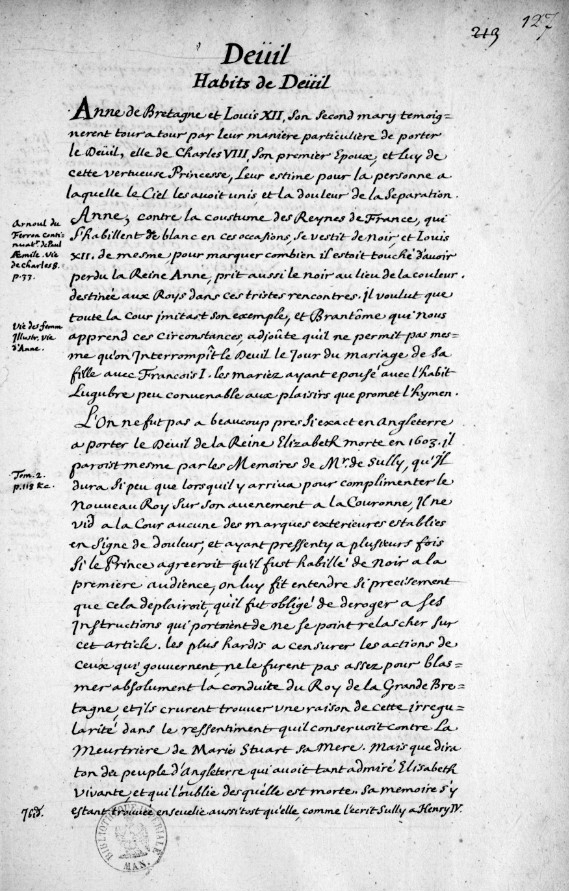 213 127
Deüil
Habits de Deüil
Anne de Bretagne et Louis XII, son second mary temoig=
nerent tour a tour par leur maniere particulière de porter
le Deüil, elle de Charles VIII, son premier Epoux, et Luy de
cette vertueuse Princesse, Leur estime pour la personne a
laquelle le Ciel les avoit unis et la douleur de la separation.
Anne, contre la coustume des Reynes de France, qui
s'habillent de blanc en ces occasions, se vestit de Noir et Louis
XII. de mesme pour marquer combien il estoit touché d'avoir
perdu la Reine Anne, prit aussi le noir au lieu de la couleur
destinée aux Roys dans ces tristes rencontres. Jl voulut que
toute la Cour jmitast son exemple, et Brantôme qui nous
apprend ces circonstances, adjoûte qu'il ne permit pas mes=
me qu'on Interrompît le Deuil le Jour du mariage de sa
fille avec Francois I. les mariéz ayant epousé avec l'habit
Lugubre peu convenable aux plaisirs que promet l'hymen.
Arnoul du
Ferron conti=
nuatr. de Paul
Æmile. Vie
de Charles 8.
p.33.
Vie des femm
Illustr. vie
d'Anne.
L'On ne fut pas a beaucoup pres si exact en Angleterre
a porter le Deuil de la Reine Elizabeth morte en 1603. il
paroist mesme par les Memoires de Mr. de Sully, qu'Jl
dura si peu que lorsqu'il y arriva pour complimenter le
Nouveau Roy sur son avenement a la Couronne, Jl ne
vid a la Cour aucune des marques exterieures establies
en signe de douleur, et ayant pressenty a plusieurs fois
si le Prince agreeroit qu'il fust habillé de noir a la
première audience, on luy fit entendre si precisement
que cela deplairoit, qu'il fut obligé de deroger a ses
Instructions qui portoient de ne se point relascher sur
cet article. les plus hardis a censurer les actions de
ceux qui gouvernent, ne le furent pas assez pour blas=
mer absolument la conduite du Roy de la Grande Bre=
tagne, et ils crurent trouver une raison de cette irregu=
larité dans le ressentiment qu'il conservoit contre La
Meurtrière de Marie Stuart sa Mere. Mais que dira
ton du peuple d'Angleterre qui avoit tant admiré Elisabeth
vivante, et qui l'oublie des qu'elle est morte. sa memoire s'y
estant trouvée ensevelie aussitost qu'elle, comme l'ecrit Sully a Henry IV.
Tom. 2.
p.118 &c.
Jbid.
MAN.